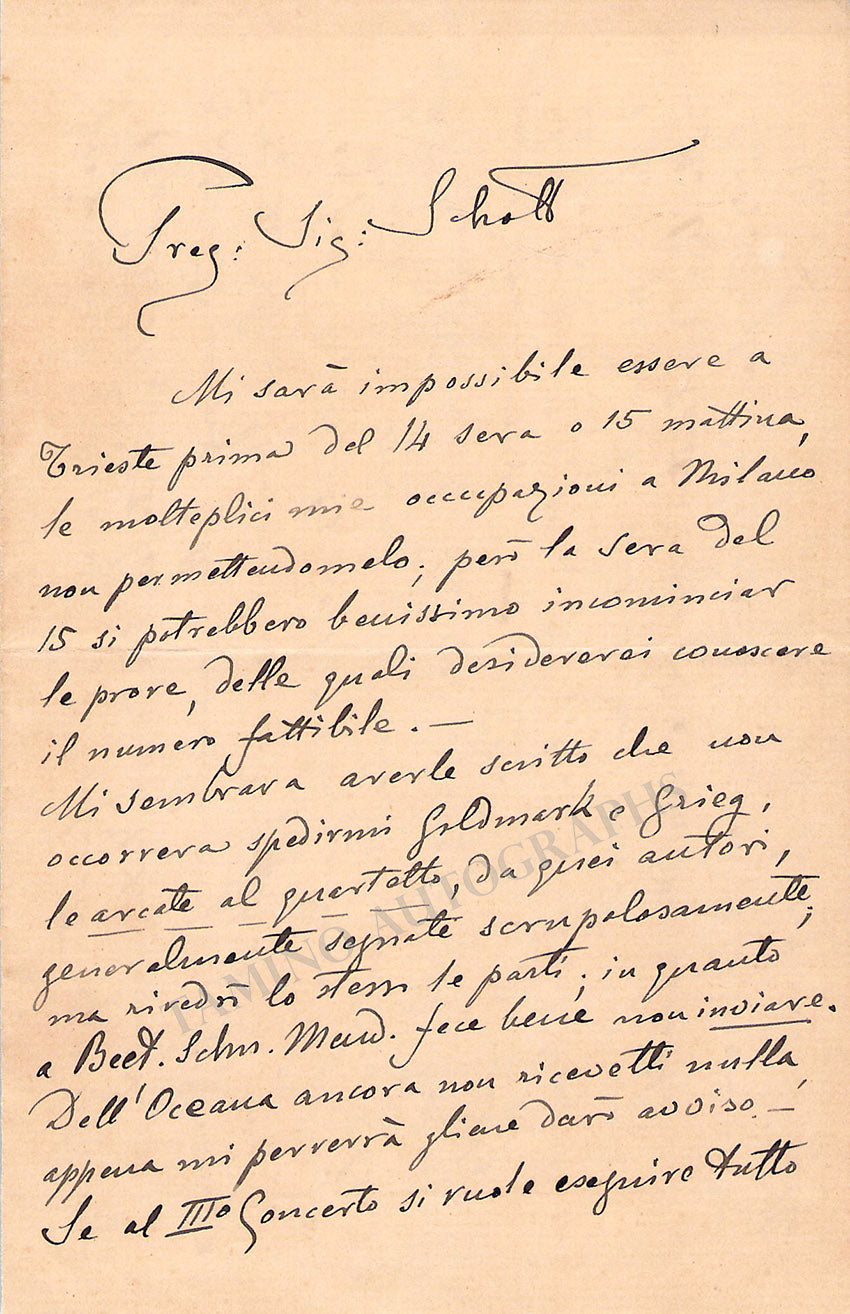 Preg: Sig: Schott
Mi sarà impossibile essere a
Trieste prima del 14 sera o 15 mattina,
le molteplici mie occupazioni a Milano
non permettendomelo; però la sera del
15 si potrebbero benissimo incominciar
le prove, delle quali desidererei conoscere
il numero fattibile. —
Mi sembrava averle scritto che non
occorreva spedirmi Goldmark e Grieg,
le arcate al quartetto, da quei autori,
generalmente segnate scrupolosamente;
ma rivedrò lo stesso le parti; in quanto
a Beet. Schu. Mend. fece bene non inviare.
Dell'Oceana ancora non ricevetti nulla,
appena mi perverrà gliene darò avviso —
Se al IIIo Concerto si vuole eseguire tutto
TAMINO AUTOGRAPHS